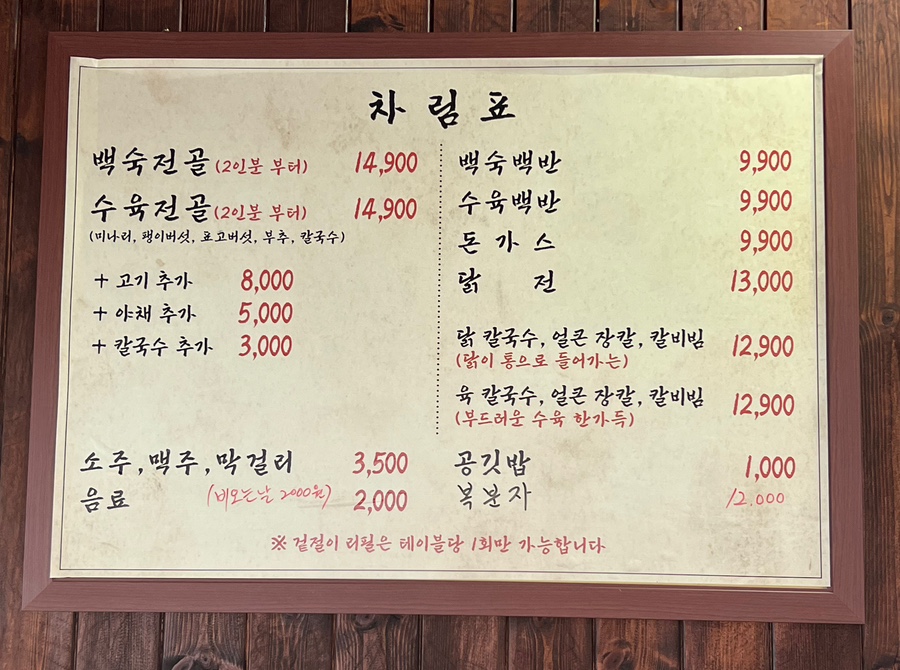 차림표
백숙전골 (2인분 부터) 14,900
수육전골 (2인분 부터) 14,900
(미나리, 팽이버섯, 표고버섯, 부추, 칼국수)
+ 고기 추가 8,000
+ 야채 추가 5,000
+ 칼국수 추가 3,000
소주, 맥주, 막걸리 3,500
음료 (비오는날 2000원) 2,000
백숙백반 9,900
수육백반 9,900
돈가스 9,900
닭전 13,000
닭 칼국수, 얼큰 장칼, 칼비빔 12,900
(닭이 통으로 들어가는)
육 칼국수, 얼큰 장칼, 칼비빔 12,900
(부드러운 수육 한가득)
공깃밥 1,000
복분자 12.000
※ 겉절이 리필은 테이블당 1회만 가능합니다